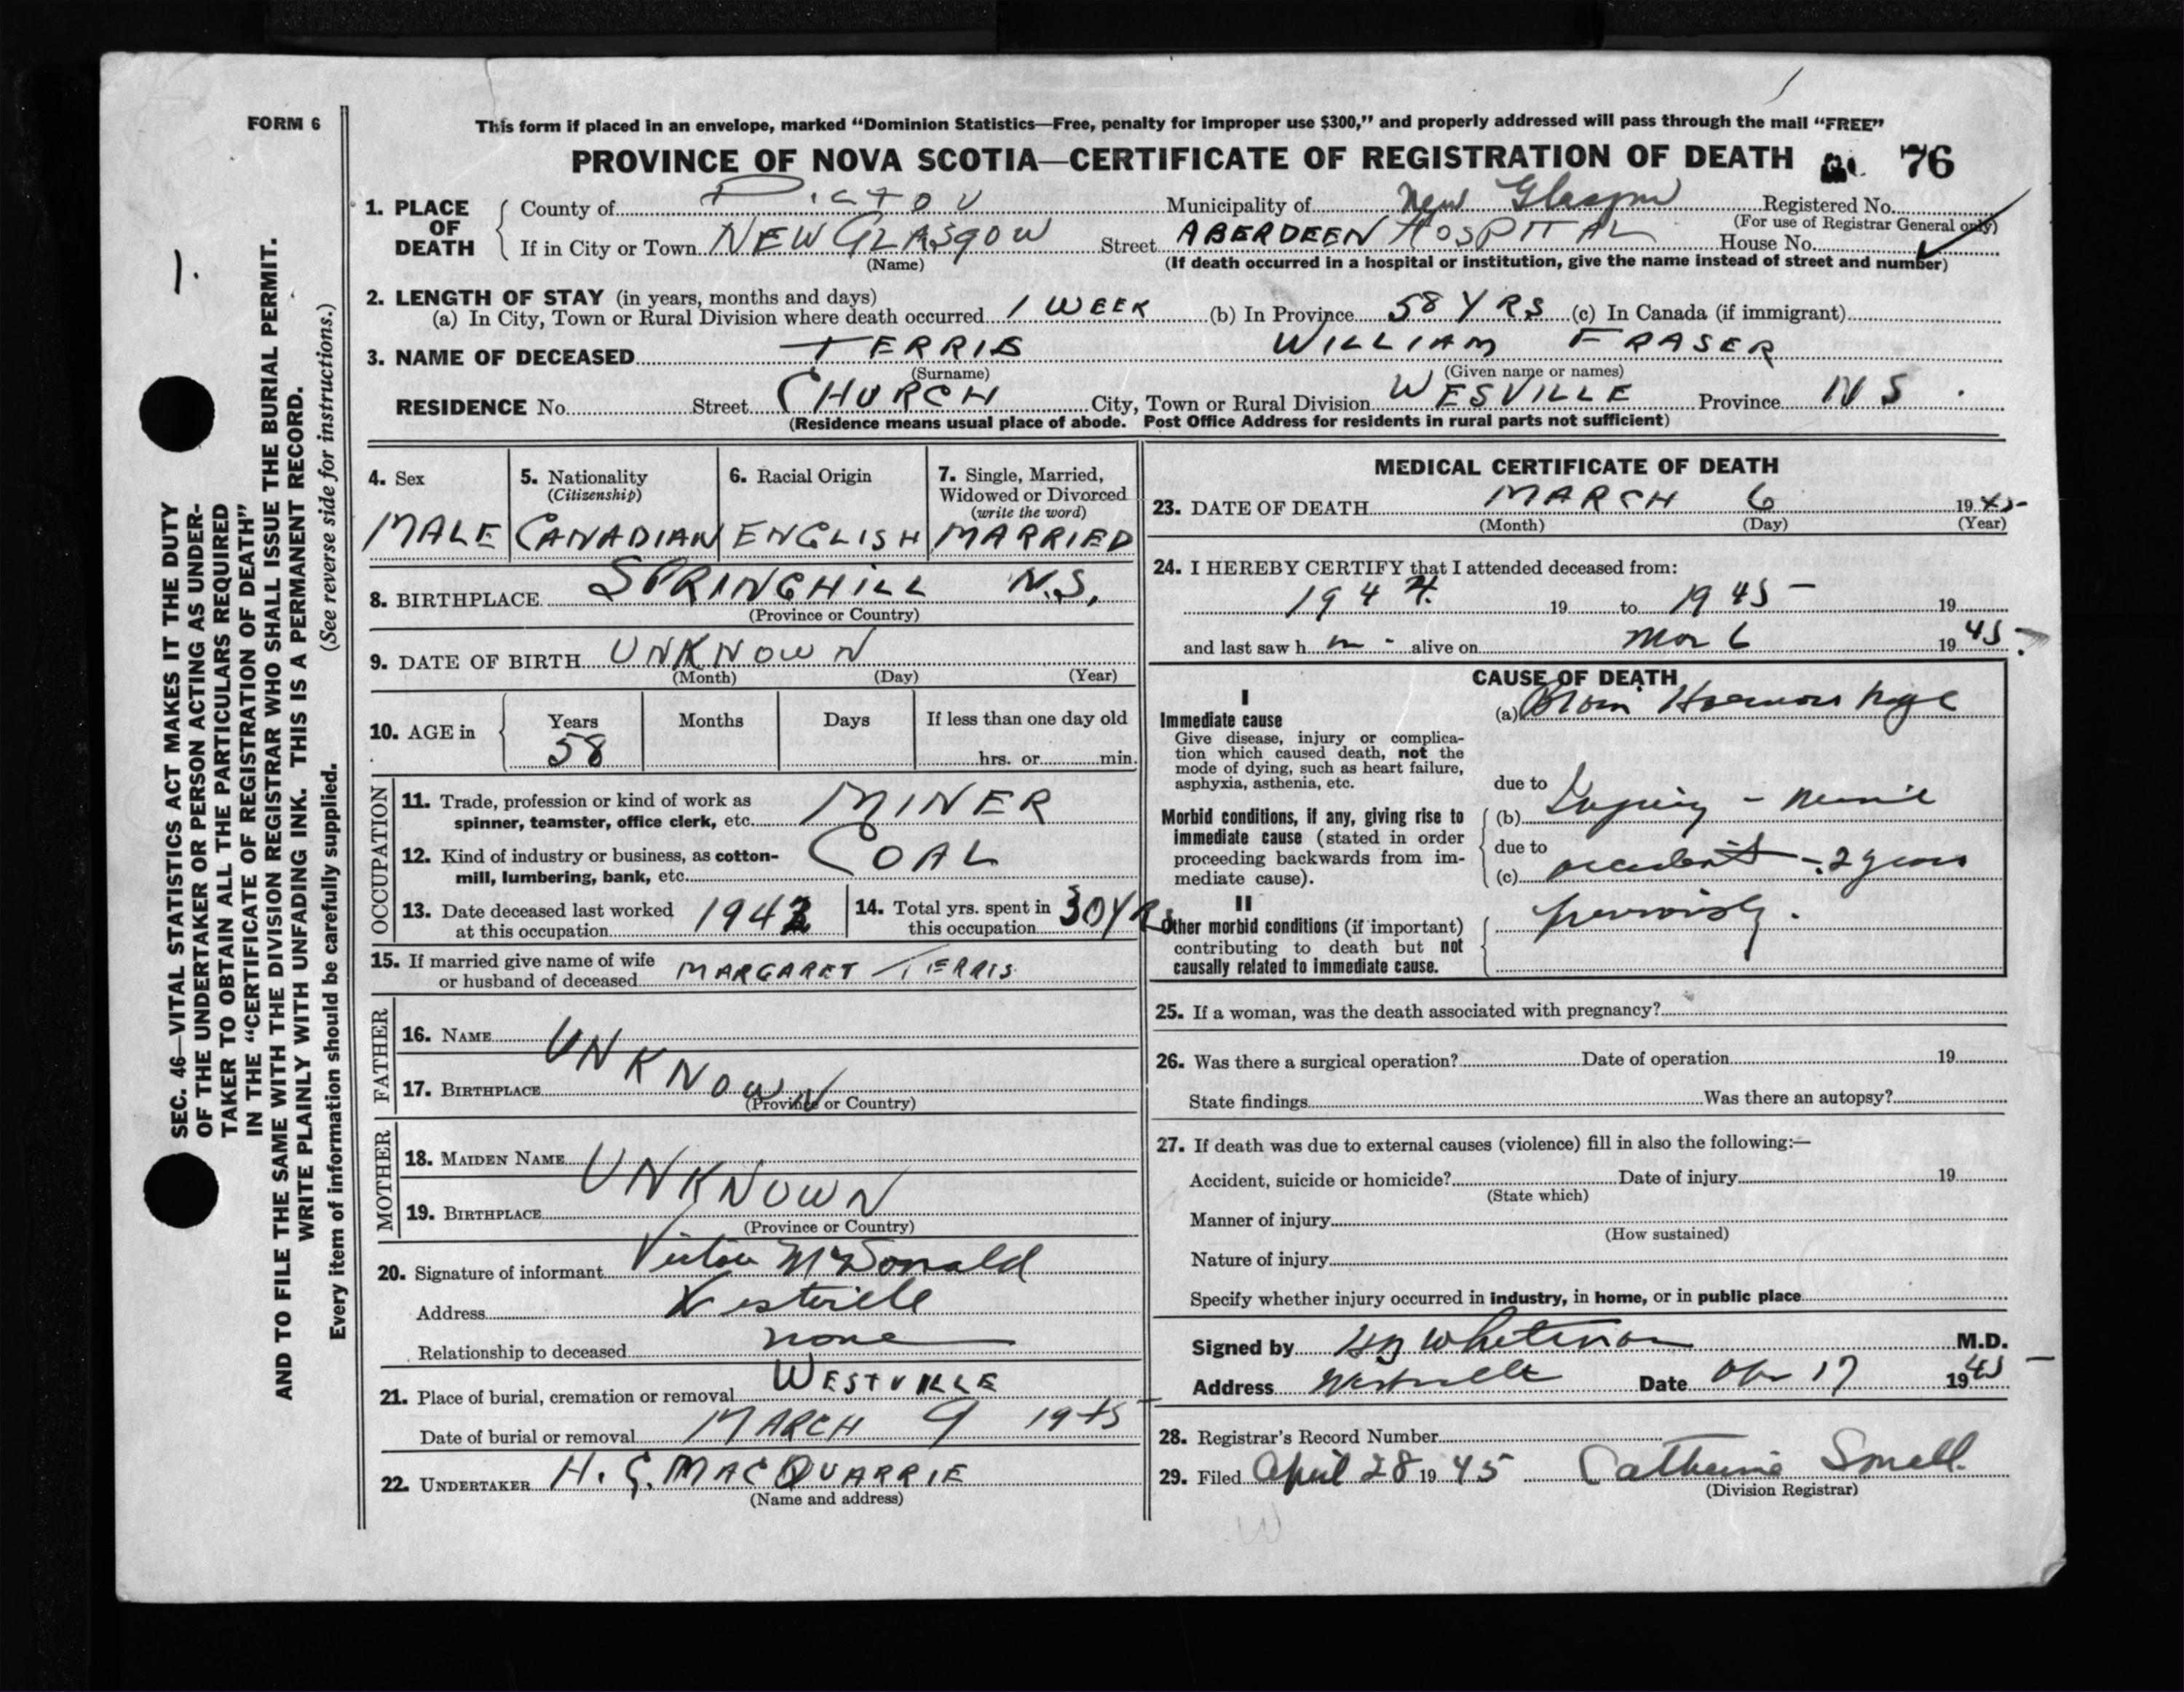 FORM 6
This form if placed in an envelope, marked “Dominion Statistics—Free, penalty for improper use $300,” and properly addressed will pass through the mail “FREE”
PROVINCE OF NOVA SCOTIA—CERTIFICATE OF REGISTRATION OF DEATH 76
1. PLACE OF DEATH
County of PICTOU Municipality of New Glasgow Registered No.
(For use of Registrar General only)
If in City or Town NEW GLASGOW Street ABERDEEN HOSPITAL House No.
(Name) (If death occurred in a hospital or institution, give the name instead of street and number)
2. LENGTH OF STAY (in years, months and days)
(a) In City, Town or Rural Division where death occurred 1 WEEK (b) In Province 58 YRS (c) In Canada (if immigrant)
3. NAME OF DECEASED TERRIS WILLIAM FRASER
(Surname) (Given name or names)
RESIDENCE No. Street CHURCH City, Town or Rural Division WESVILLE Province NS
(Residence means usual place of abode. Post Office Address for residents in rural parts not sufficient)
4. Sex
MALE
5. Nationality
(Citizenship)
CANADIAN
6. Racial Origin
ENGLISH
7. Single, Married,
Widowed or Divorced
(write the word)
MARRIED
8. BIRTHPLACE SPRINGHILL N.S.
(Province or Country)
9. DATE OF BIRTH UNKNOWN
(Month) (Day) (Year)
10. AGE in
Years Months Days If less than one day old
58 hrs. or min.
OCCUPATION
11. Trade, profession or kind of work as
spinner, teamster, office clerk, etc. MINER
12. Kind of industry or business, as cotton-
mill, lumbering, bank, etc. COAL
13. Date deceased last worked
at this occupation 1942
14. Total yrs. spent in
this occupation 30 YRS
15. If married give name of wife
or husband of deceased MARGARET TERRIS
FATHER
16. NAME
UNKNOWN
17. BIRTHPLACE
(Province or Country)
MOTHER
18. MAIDEN NAME
UNKNOWN
19. BIRTHPLACE
(Province or Country)
20. Signature of informant Victor McDonald
Address Westville
Relationship to deceased none
21. Place of burial, cremation or removal WESTVILLE
Date of burial or removal MARCH 9 1945
22. UNDERTAKER H. G. MACQUARRIE
(Name and address)
MEDICAL CERTIFICATE OF DEATH
23. DATE OF DEATH MARCH 6 1945
(Month) (Day) (Year)
24. I HEREBY CERTIFY that I attended deceased from:
1944 19 to 1945 19
and last saw h m alive on Mar 6 1945
CAUSE OF DEATH
I
Immediate cause
Give disease, injury or complica-
tion which caused death, not the
mode of dying, such as heart failure,
asphyxia, asthenia, etc.
(a)
due to
Morbid conditions, if any, giving rise to
immediate cause (stated in order
proceeding backwards from im-
mediate cause).
(b) Injury -
due to
(c) accident - 2 years
previously.
II
Other morbid conditions (if important)
contributing to death but not
causally related to immediate cause.
25. If a woman, was the death associated with pregnancy?
26. Was there a surgical operation? Date of operation 19
State findings Was there an autopsy?
27. If death was due to external causes (violence) fill in also the following:—
Accident, suicide or homicide? Date of injury 19
(State which)
Manner of injury
(How sustained)
Nature of injury
Specify whether injury occurred in industry, in home, or in public place
Signed by Whiteman M.D.
Address Westville Date 17 1945
28. Registrar's Record Number
29. Filed April 28 1945 Catherine Smell
(Division Registrar)
1.
SEC. 46—VITAL STATISTICS ACT MAKES IT THE DUTY
OF THE UNDERTAKER OR PERSON ACTING AS UNDER-
TAKER TO OBTAIN ALL THE PARTICULARS REQUIRED
IN THE “CERTIFICATE OF REGISTRATION OF DEATH”
AND TO FILE THE SAME WITH THE DIVISION REGISTRAR WHO SHALL ISSUE THE BURIAL PERMIT.
WRITE PLAINLY WITH UNFADING INK. THIS IS A PERMANENT RECORD.
Every item of information should be carefully supplied. (See reverse side for instructions.)